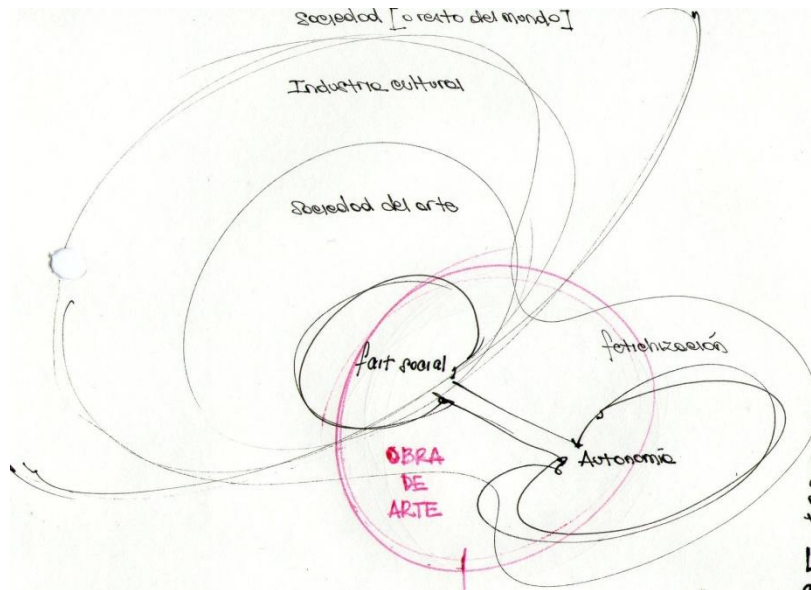 Sociedad [o resto del mundo]
Industria cultural
Sociedad del arte
fait social
fetichización
Autonomía
OBRA
DE
ARTE